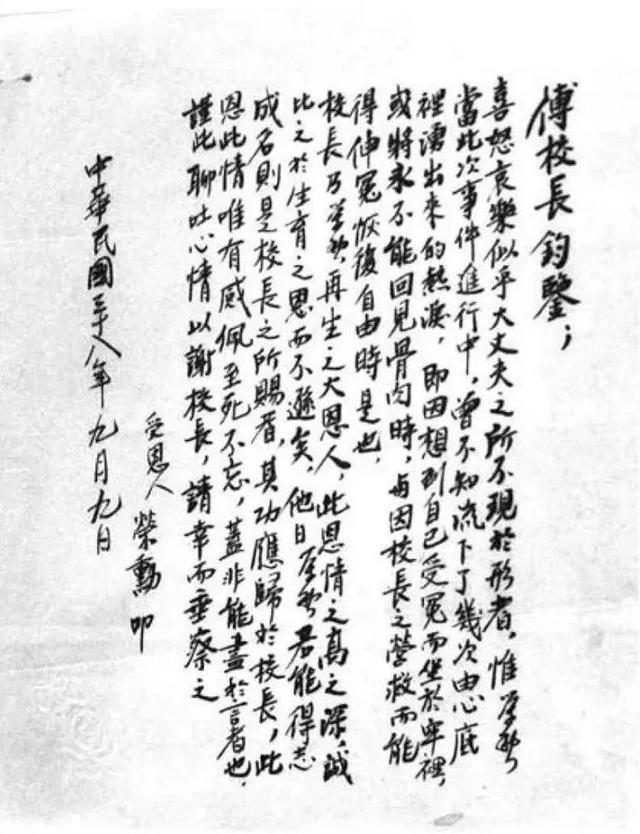 傅校長鈞鑒；
喜怒哀樂似乎大丈夫之所不現於形者，惟學生
當此次事件進行中，曾不知流下了幾次由心底
裡湧出來的熱淚，即因想到自己受冤而坐於牢裡，
或將永不能回見骨肉時，与因校長之營救而能
得伸冤恢復自由時是也．
校長乃學生再生之大恩人，此恩情之高之深，誠
比之於生育之恩而不遜矣，他日學生若能得志
成名則是校長之所賜者，其功應歸於校長，此
恩此情唯有感佩至死不忘，蓋非能盡於言者也．
謹此聊吐心情以謝校長，請幸而垂察之
受恩人 榮勳 叩
中華民國三十八年九月九日